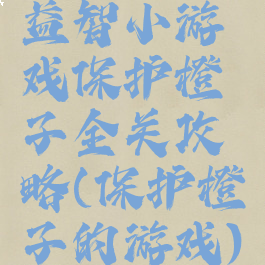 益智小游
戏保护橙
子全关攻
略(保护橙
子的游戏)